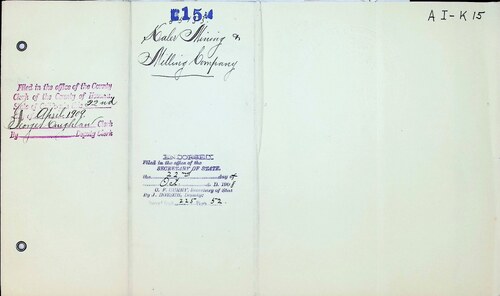 A I - K 15
E154
Mining &
Milling Company
Filed in the office of the County
Clerk of the County of
22nd
April 1909
George Coughlan Clerk
By Deputy Clerk
Filed in the office of the
SECRETARY OF STATE.
the 22nd day of
Oct A. D. 1908
C. F. CURRY, Secretary of State
By J. Deputy
225 52